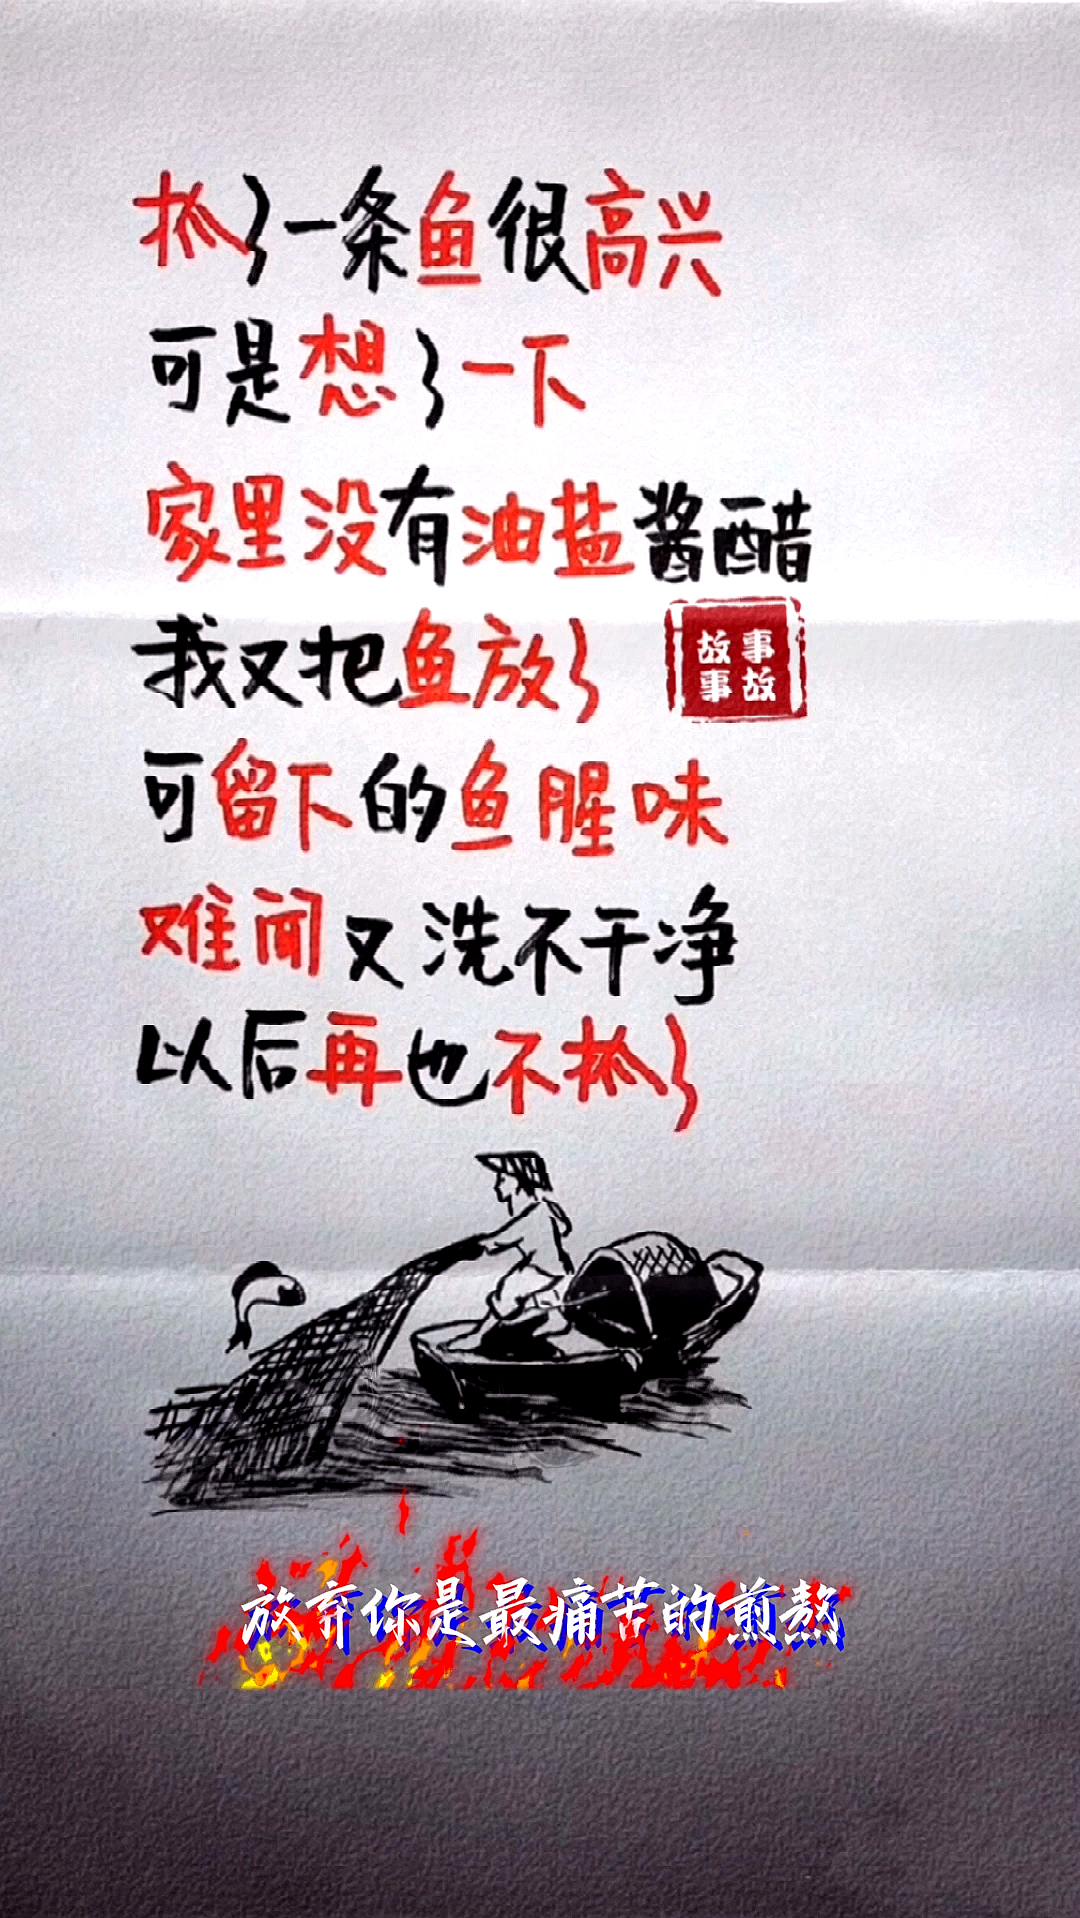 抓了一条鱼很高兴
可是想了一下
家里没有油盐酱醋
我又把鱼放了
故事
事故
可留下的鱼腥味
难闻又洗不干净
以后再也不抓了
放弃你是最痛苦的煎熬